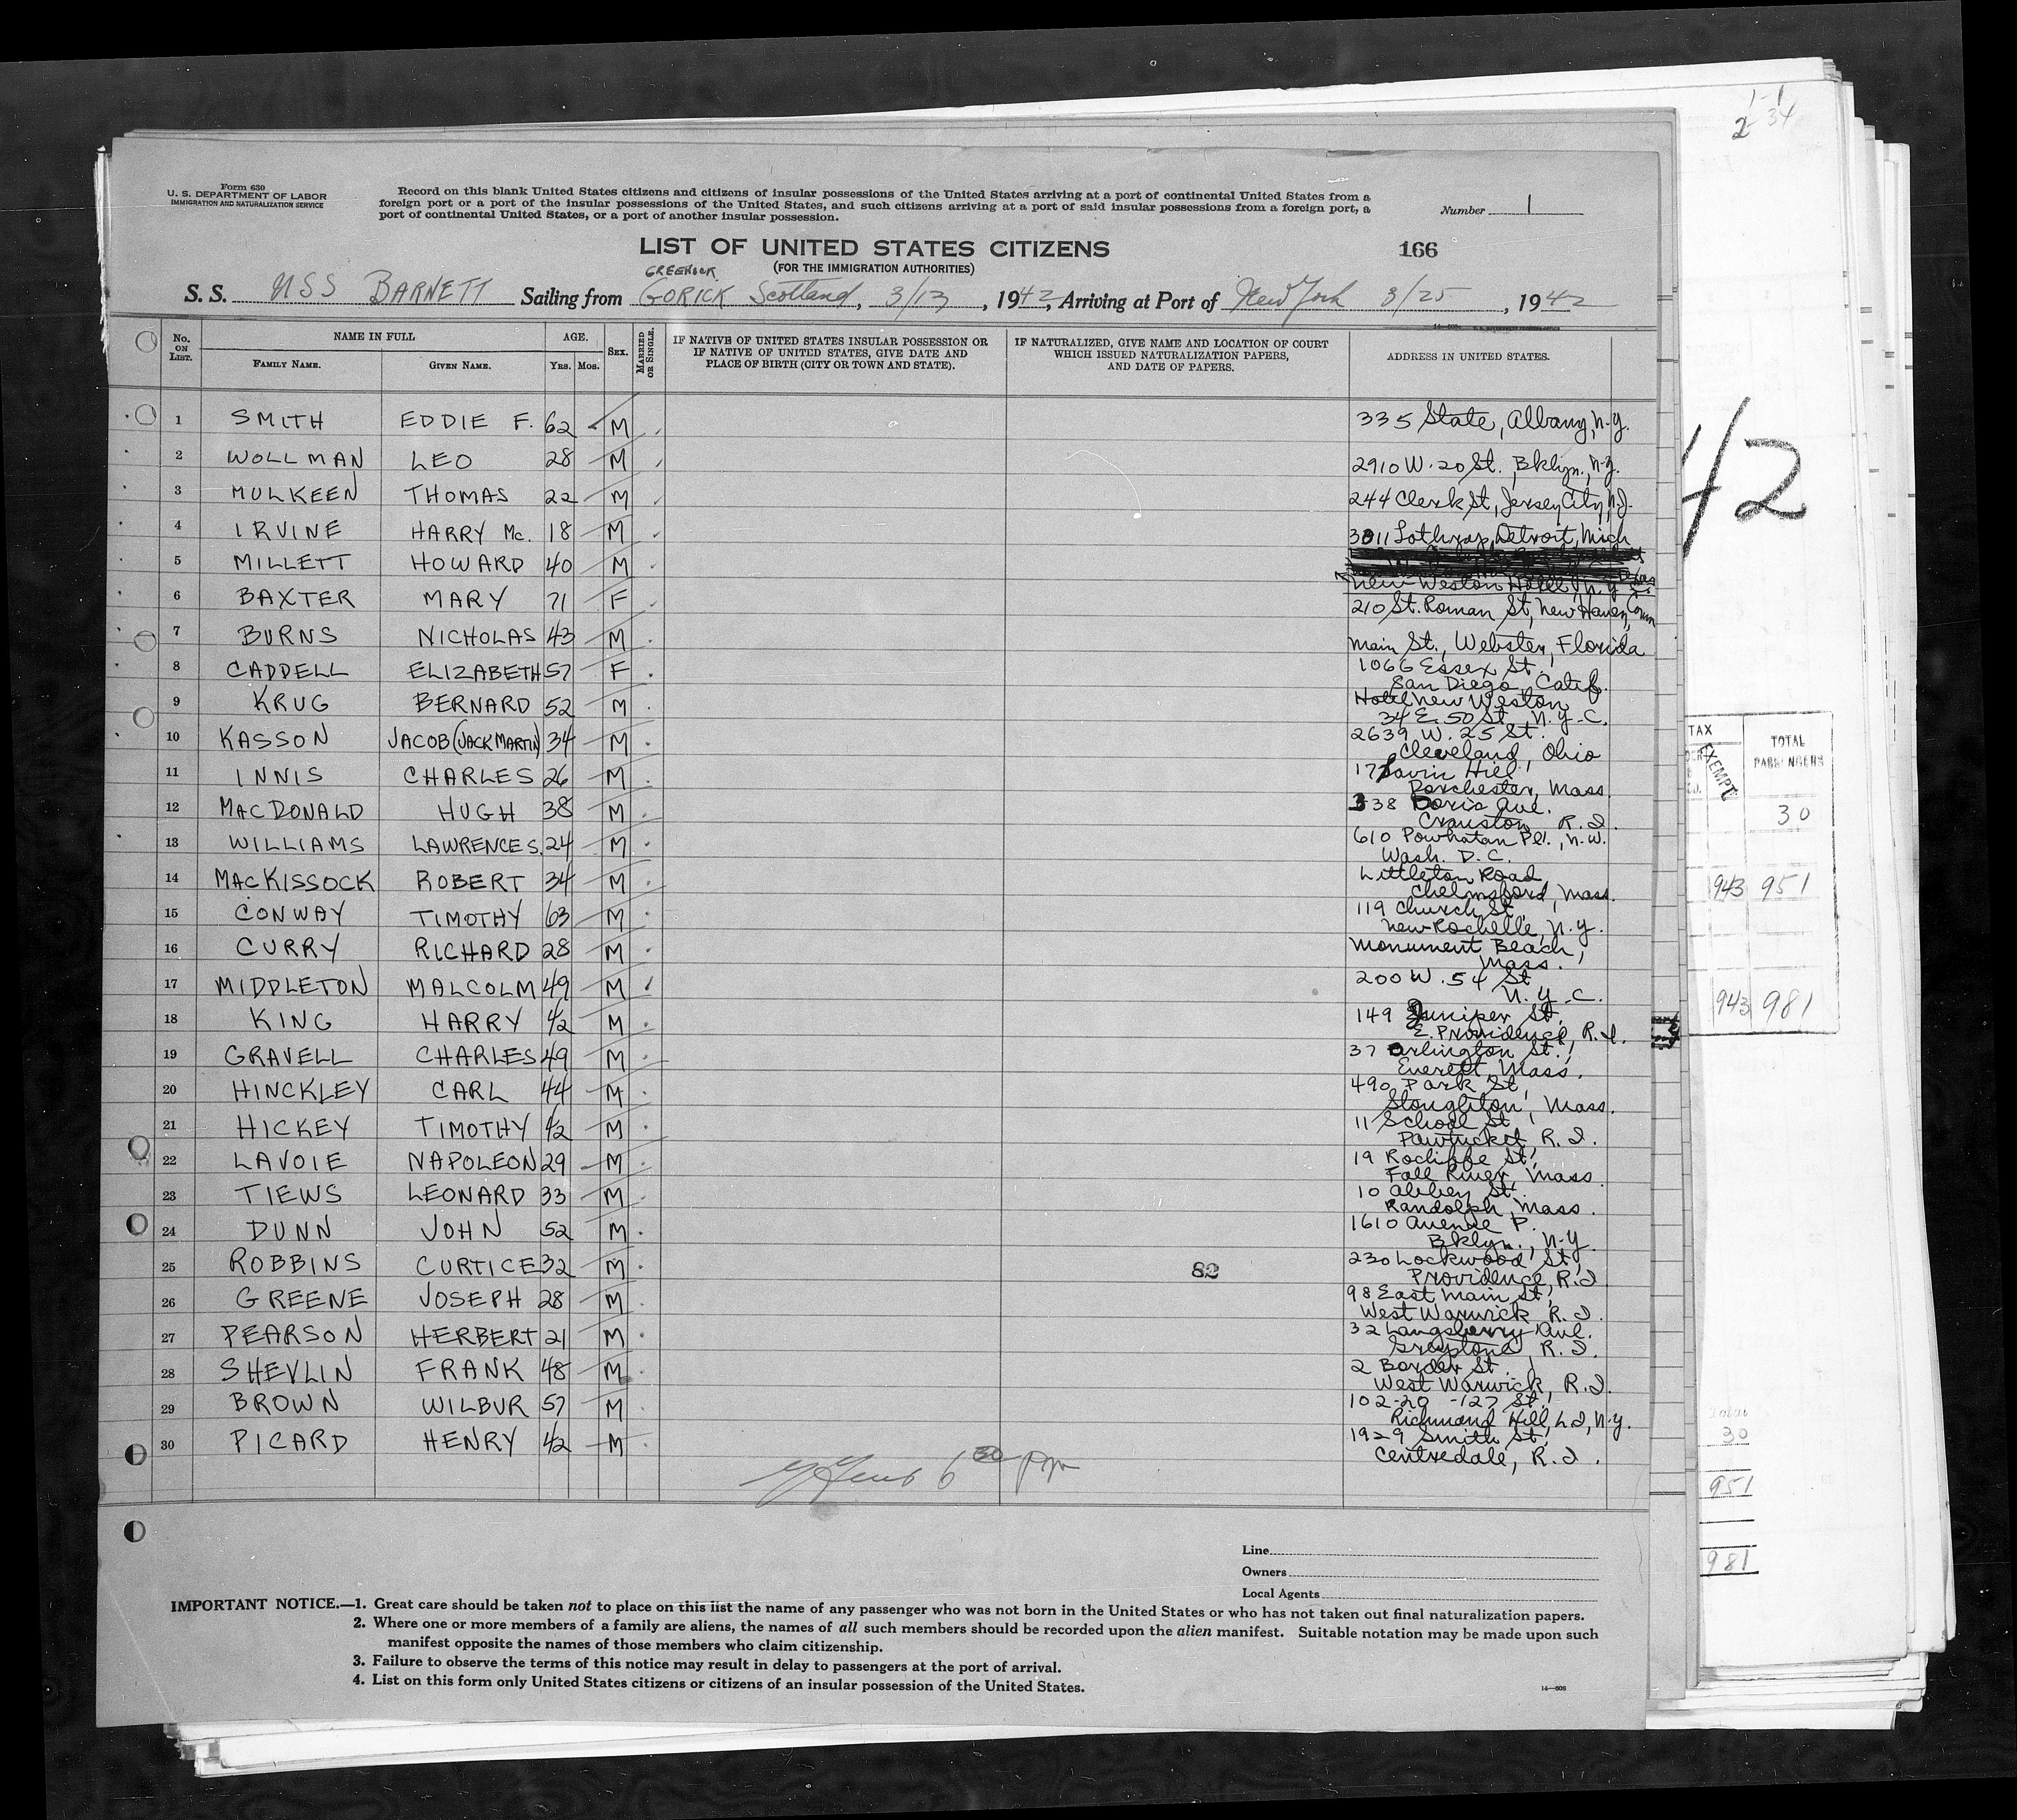 1-1
2 34
Form 630
U. S. DEPARTMENT OF LABOR
IMMIGRATION AND NATURALIZATION SERVICE
Record on this blank United States citizens and citizens of insular possessions of the United States arriving at a port of continental United States from a
foreign port or a port of the insular possessions of the United States, and such citizens arriving at a port of said insular possessions from a foreign port, a
port of continental United States, or a port of another insular possession.
Number 1
LIST OF UNITED STATES CITIZENS
166
(FOR THE IMMIGRATION AUTHORITIES)
GREENOCK
S. S. USS BARNETT Sailing from GORICK Scotland, 3/13, 1942, Arriving at Port of New York 3/25, 1942
No. ON LIST. NAME IN FULL AGE. SEX. MARRIED OR SINGLE.
FAMILY NAME. GIVEN NAME. YRS. MOS.
IF NATIVE OF UNITED STATES INSULAR POSSESSION OR
IF NATIVE OF UNITED STATES, GIVE DATE AND
PLACE OF BIRTH (CITY OR TOWN AND STATE).
IF NATURALIZED, GIVE NAME AND LOCATION OF COURT
WHICH ISSUED NATURALIZATION PAPERS,
AND DATE OF PAPERS.
ADDRESS IN UNITED STATES.
1 SMITH EDDIE F. 62 M 335 State, Albany, N.Y.
2 WOLLMAN LEO 28 M 2910 W. 20 St., Bklyn., N.Y.
3 MULKEEN THOMAS 22 M 244 Clerk St, Jersey City, N.J.
4 IRVINE HARRY Mc. 18 M 3011 Lothrop, Detroit, Mich
5 MILLETT HOWARD 40 M New Weston Hotel N.Y.C.
6 BAXTER MARY 71 F 210 St. Roman St, New Haven, Conn
7 BURNS NICHOLAS 43 M Main St., Webster, Florida
8 CADDELL ELIZABETH 57 F 1066 Essex St.
San Diego, Calif.
9 KRUG BERNARD 52 M Hotel New Weston
34 E. 50 St., N.Y.C.
10 KASSON JACOB (JACK MARTIN) 34 M 2639 W. 25 St.
Cleveland, Ohio
11 INNIS CHARLES 26 M 17 Savin Hill
Dorchester, Mass.
12 MACDONALD HUGH 38 M 338 Doris Ave.
Cranston, R.I.
13 WILLIAMS LAWRENCE S. 24 M 610 Powhatan Pl., N.W.
Wash. D.C.
14 MACKISSOCK ROBERT 34 M Littleton Road
Chelmsford, Mass.
15 CONWAY TIMOTHY 63 M 119 Church St.
New Rochelle, N.Y.
16 CURRY RICHARD 28 M Monument Beach,
Mass.
17 MIDDLETON MALCOLM 49 M 200 W. 54 St
N.Y.C.
18 KING HARRY 42 M 149 Juniper St.
E. Providence, R.I.
19 GRAVELL CHARLES 49 M 37 Arlington St.,
Everett, Mass.
20 HINCKLEY CARL 44 M 490 Park St,
Stoughton, Mass.
21 HICKEY TIMOTHY 42 M 11 School St
Pawtucket, R.I.
22 LAVOIE NAPOLEON 29 M 19 Rocliffe St.
Fall River, Mass.
23 TIEWS LEONARD 33 M 10 Abbey St.
Randolph, Mass.
24 DUNN JOHN 52 M 1610 Avenue P.
Bklyn., N.Y.
25 ROBBINS CURTICE 32 M 82 230 Lockwood St,
Providence, R.I.
26 GREENE JOSEPH 28 M 98 East Main St,
West Warwick R.I.
27 PEARSON HERBERT 21 M 32 Langsberry Ave.
Greystone, R.I.
28 SHEVLIN FRANK 48 M 2 Border St.
West Warwick, R.I.
29 BROWN WILBUR 57 M 102-20 -127 St.
Richmond Hill, L.I., N.Y.
30 PICARD HENRY 42 M 1929 Smith St.
Centredale, R.I.
6 30 pm
Line
Owners
Local Agents
IMPORTANT NOTICE.—1. Great care should be taken not to place on this list the name of any passenger who was not born in the United States or who has not taken out final naturalization papers.
2. Where one or more members of a family are aliens, the names of all such members should be recorded upon the alien manifest. Suitable notation may be made upon such
manifest opposite the names of those members who claim citizenship.
3. Failure to observe the terms of this notice may result in delay to passengers at the port of arrival.
4. List on this form only United States citizens or citizens of an insular possession of the United States.
14—608
42
TAX
EXEMPT
TOTAL
PASSENGERS
30
943 951
943 981
Total
30
951
981